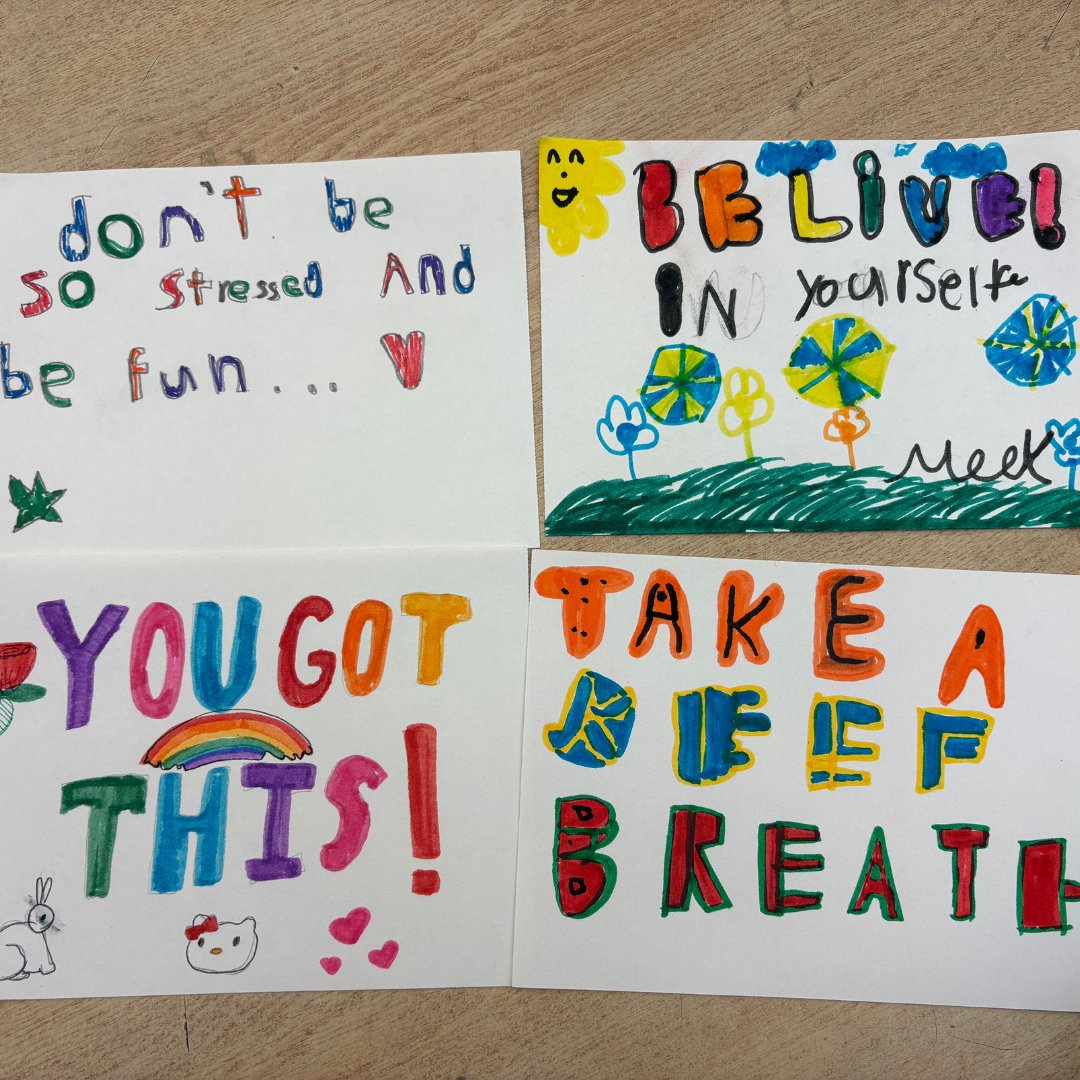 don't be
so stressed And
be fun...
BELiVE!
IN yourself
Meek
YOU GOT
THIS!
TAKE A
DEEP
BREATH